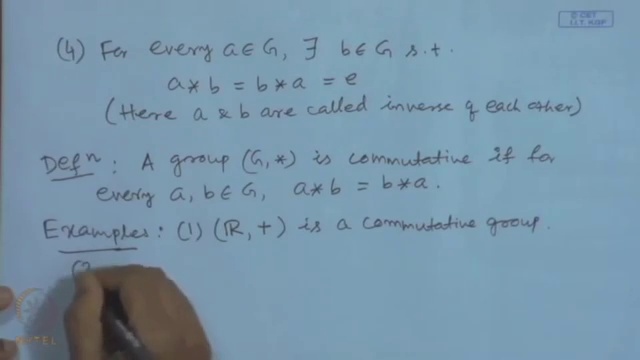 © CET
I.I.T. KGP
(4) For every a ∈ G, ∃ b ∈ G s.t.
a * b = b * a = e
(Here a & b are called inverse of each other)
Defⁿ : A group (G, *) is commutative if for
every a, b ∈ G, a * b = b * a.
Examples : (1) (ℝ, +) is a commutative group.
NPTEL